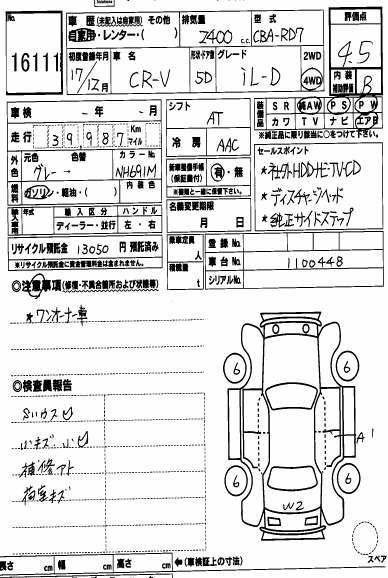 16111
車歴 (未記入は自家用) その他
自家用・レンター・( )
排気量
2400 c.c.
型式
CBA-RD7
評価点
4.5
初度登録年月
17/12月
車名
CR-V
形状・ドア数
5D
グレード
iL-D
2WD
4WD
内装
補助評価
B
車検 ~ 年 ~ 月
走行 39987 Km マイル
外色
元色
グレー→
色替
カラーNo.
NH691M
燃料
ガソリン・軽油・( )
内装色
輸入車
年式
輸入区分
ディーラー・並行
ハンドル
左・右
リサイクル預託金 13050 円 預託済み
※リサイクル預託金に資金管理料金は含まれません。
シフト
AT
冷房
AAC
新車整備手帳
(保証書付)
有・無
名義変更期限
月 日
乗車定員
人
積載量
t
装備品
SR 純AW PS PW
カワ TV ナビ エアB
※純正品に限り該当に○をつけて下さい。
セールスポイント
*社外HDD+E・TV・CD
*ディスチャージヘッド
*純正サイドステップ
登録No.
車台No. 1100448
シリアルNo.
◎注意事項 (修復・不具合箇所および状態等)
*ワンオーナー車
◎検査員報告
小キズ 小凹
補修アト
荷室キズ
6
6
6
6
A1
W2
スペア
長さ cm 幅 cm 高さ cm ←(車検証上の寸法)